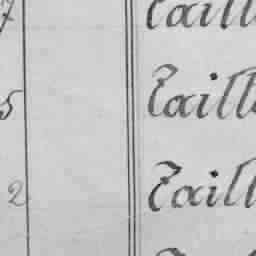 7 Taill
5 Taill
2 Taill